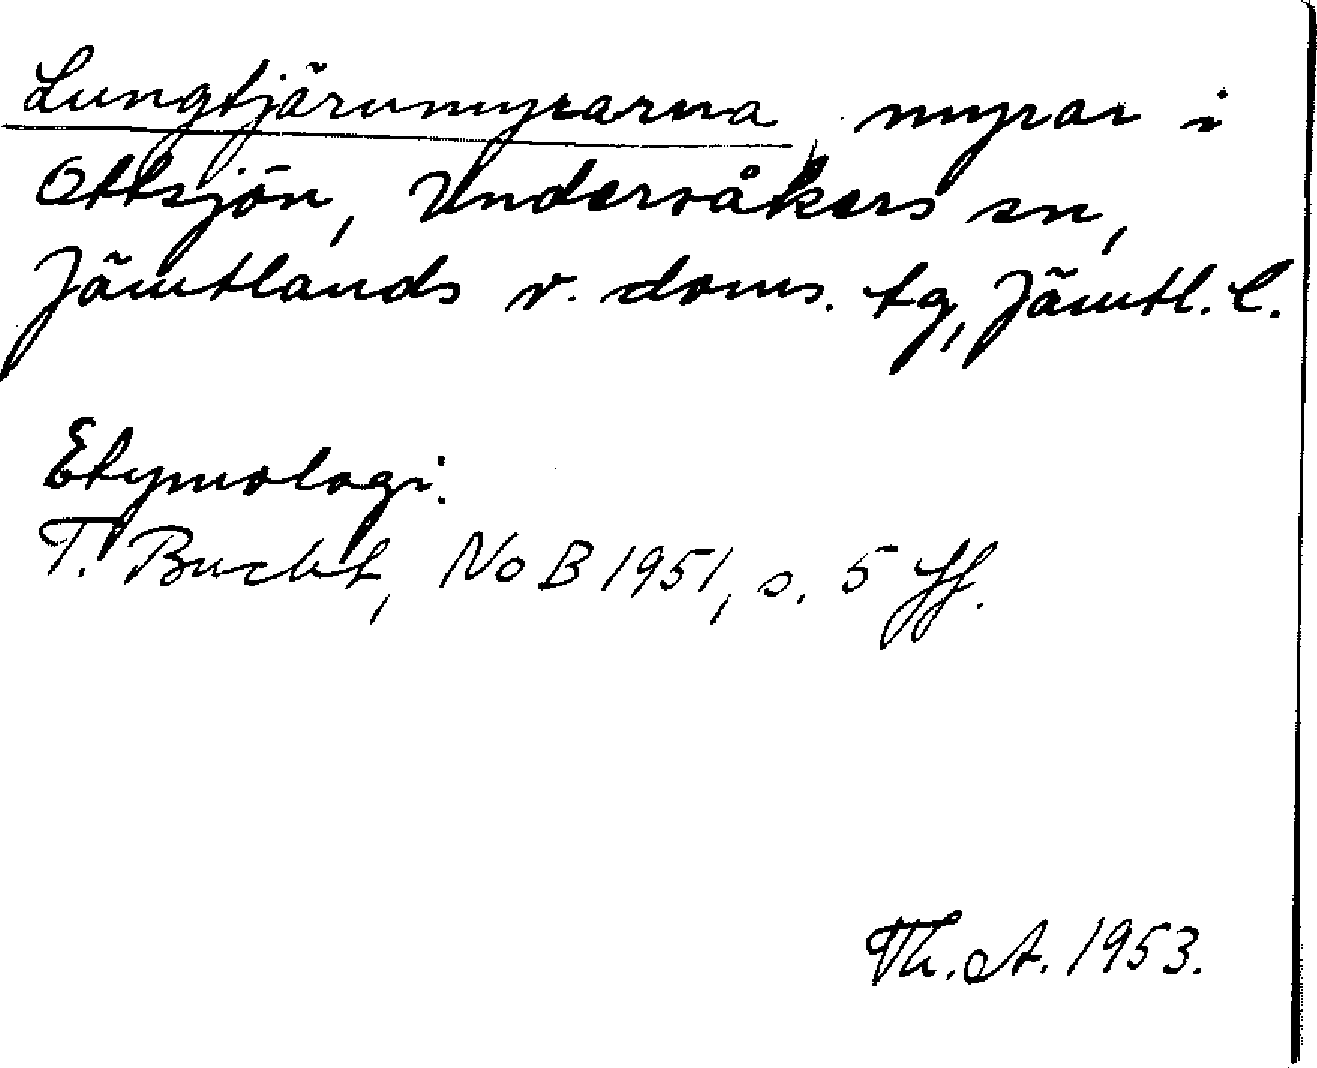 Lungtjärnmyrarna, myrar i
Ottsjön, Undersåkers sn,
Jämtlands v. doms. tg, Jämtl. l.
Etymologi.
T. Bucht, NoB 1951, s. 5 ff.
Th. A. 1953.